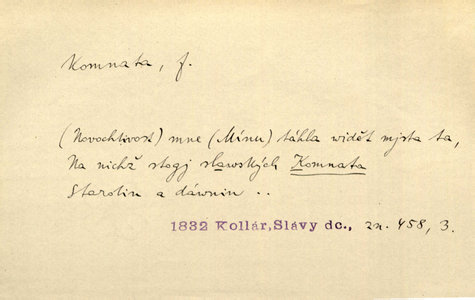 Komnata, f.
(Novochtivost) mne (Mínu) táhla widět mjsta ta,
Na nichž stogj slawských Komnata
Starotin a dáwnin ..
1832 Kollár, Slávy dc., zn. 458, 3.